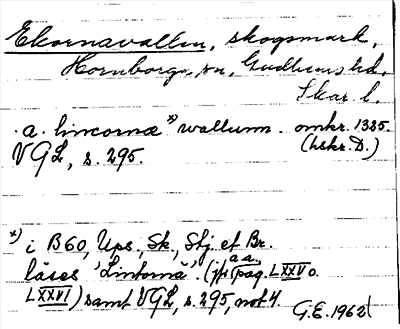 Ekornavallen, skogsmark,
Hornborga sn, Gudhems hd,
Skar. l.
a. lincornæ *) wallum. omkr. 1325.
VGL, s. 295. (hskr. D.)
*) i B60, Ups., Sk., Stj. et Br.
läses 'Lintornæ'. (jfr a.a. pag. LXXV o.
LXXVI) samt VGL, s. 295, not 4.
G.E. 1962